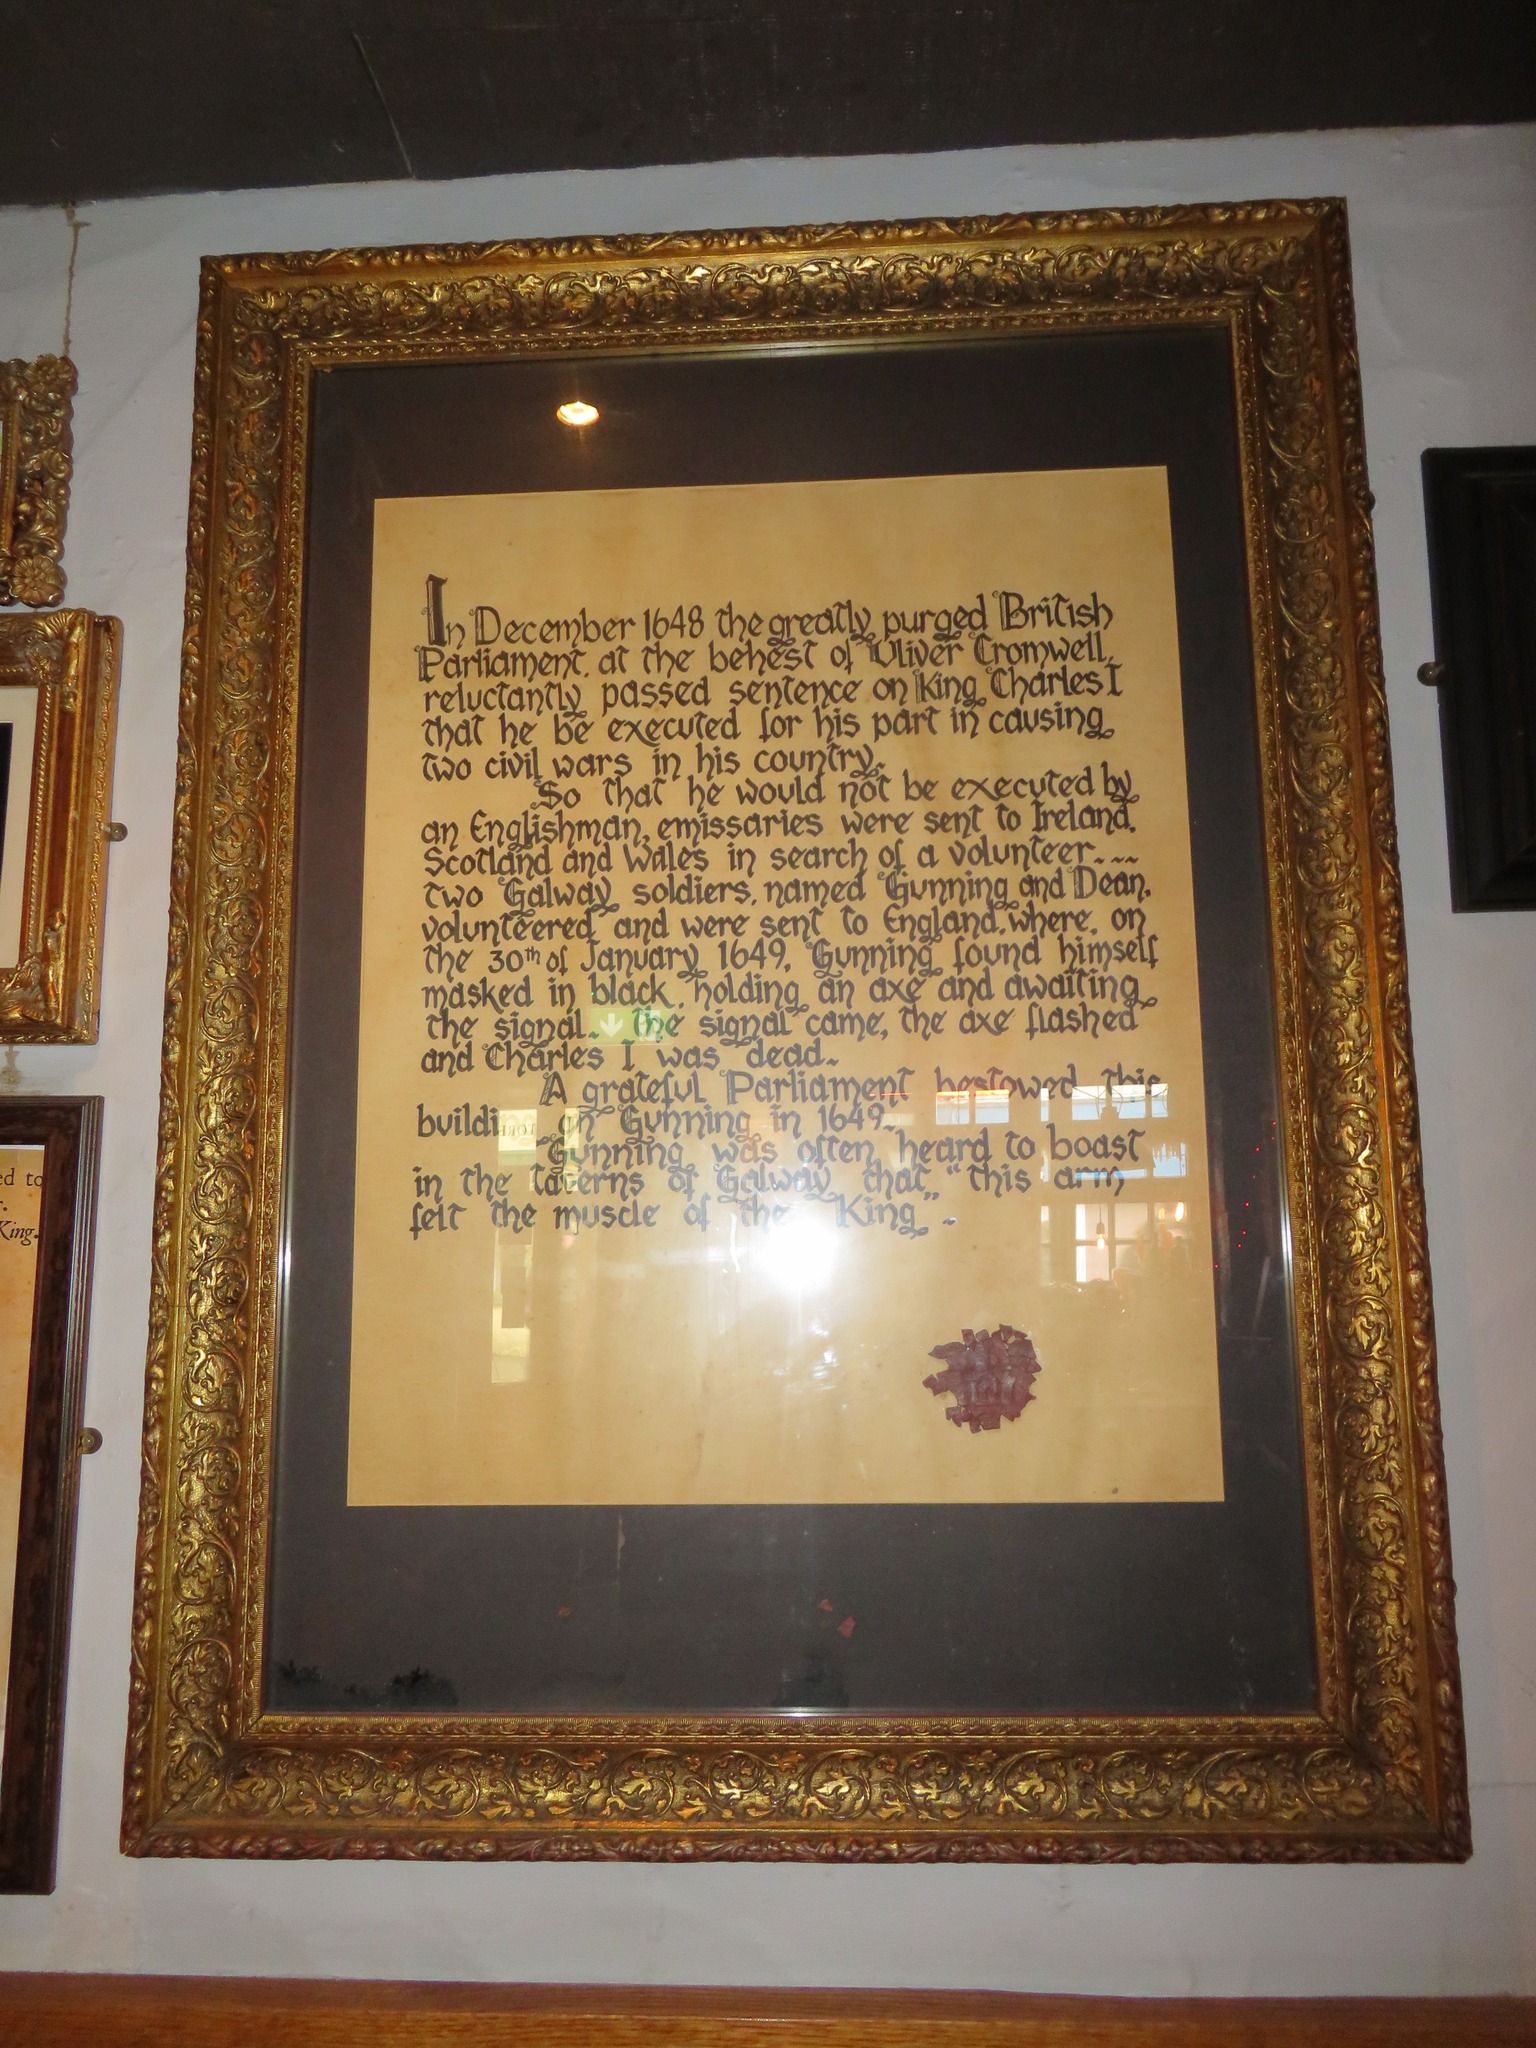 In December 1648 the greatly purged British
Parliament, at the behest of Oliver Cromwell,
reluctantly passed sentence on King Charles I
that he be executed for his part in causing
two civil wars in his country.
So that he would not be executed by
an Englishman, emissaries were sent to Ireland,
Scotland and Wales in search of a volunteer....
two Galway soldiers, named Gunning and Dean,
volunteered and were sent to England, where, on
the 30th of January 1649, Gunning found himself
masked in black, holding an axe and awaiting
the signal. The signal came, the axe flashed
and Charles I was dead.
A grateful Parliament bestowed this
buildi on Gunning in 1649.
Gunning was often heard to boast
in the taverns of Galway that,, "this arm
felt the muscle of the King" .
ed to
r.
King.